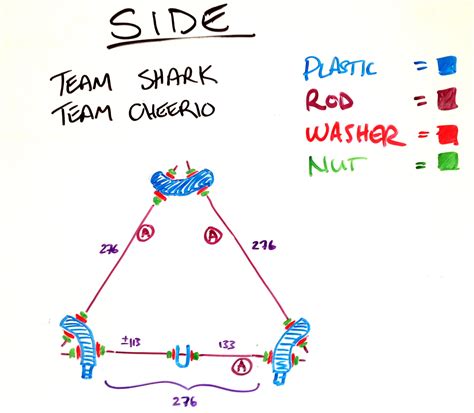 SIDE
TEAM SHARK
TEAM CHEERIO
PLASTIC =
ROD =
WASHER =
NUT =
276 A A 276
A
±113 133
276